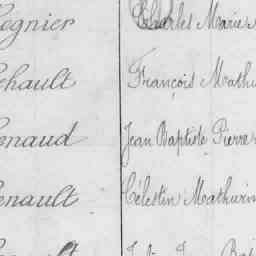 ognier Charles Marie
hault François Mathu
enaud Jean Baptiste Pierre
enault Célestin Mathurin